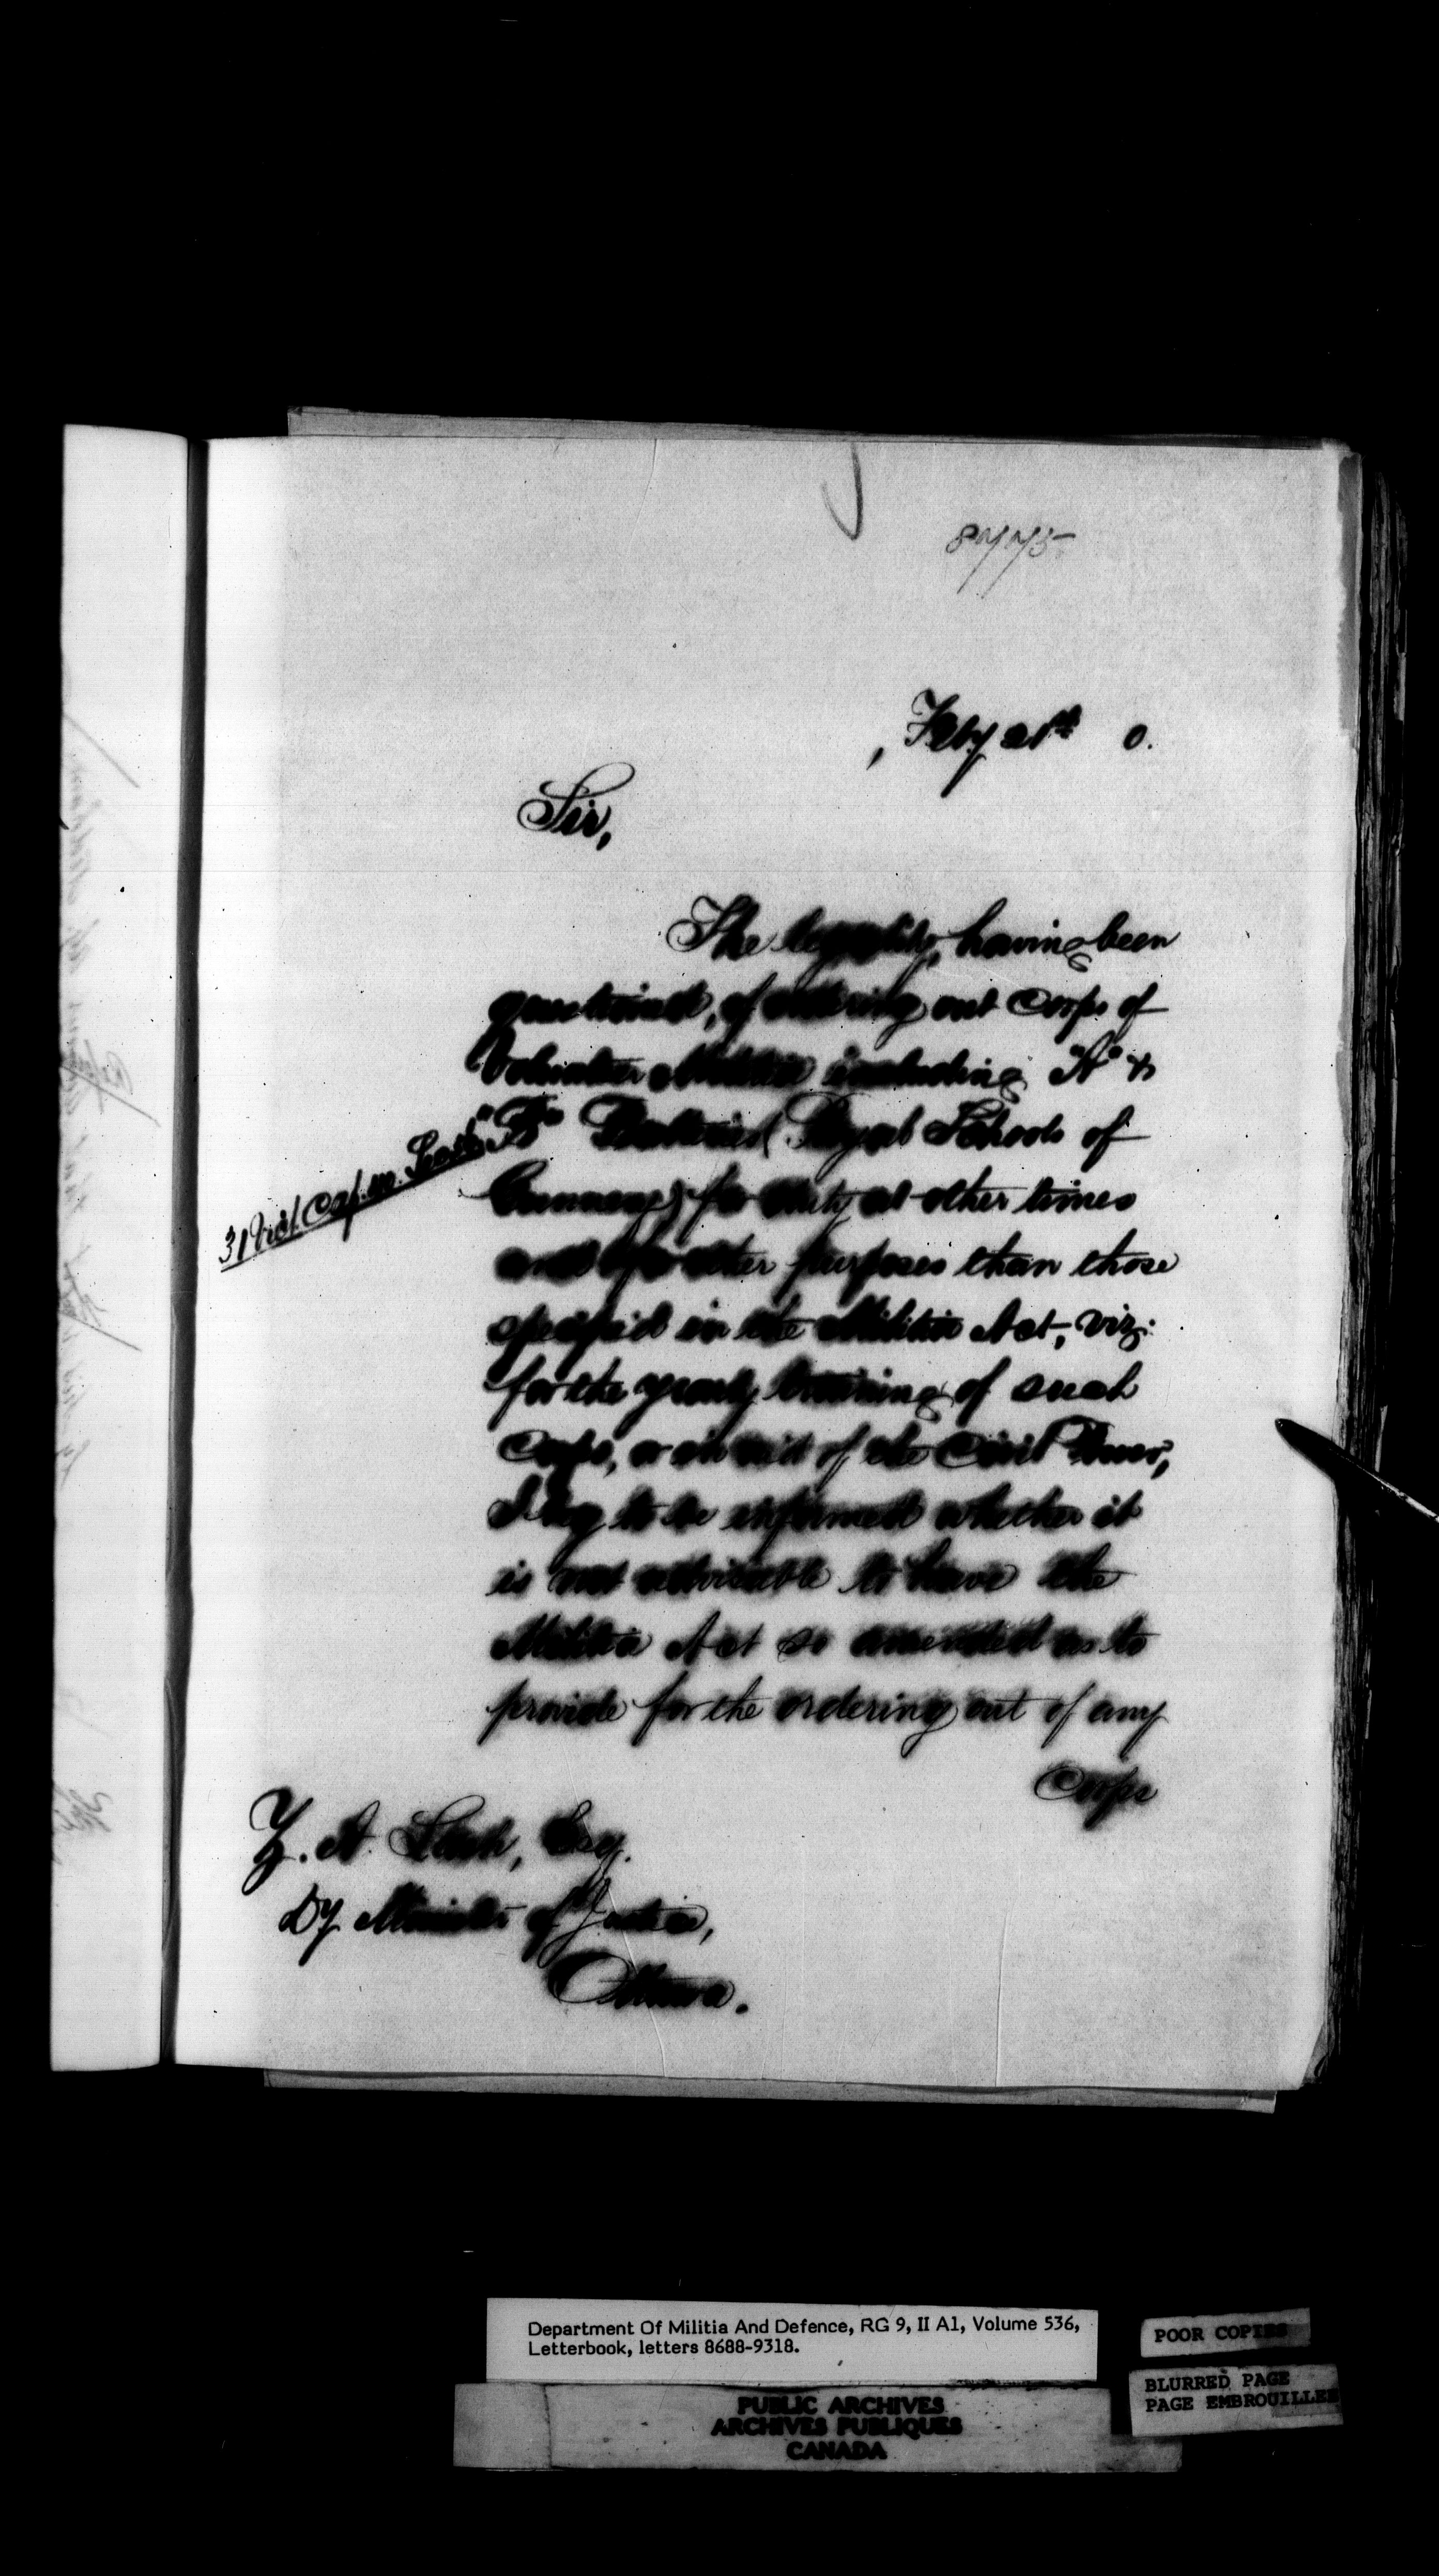 8775
, Feby 21st 0.
Sir,
The legality, having been
questioned, of ordering out Corps of
Volunteer Militia including "A" &
"B" Batteries (Royal Schools of
31 Vict. Cap. 40. Sect.
Gunnery) for duty at other times
and for other purposes than those
specified in the Militia Act, viz:
for the yearly training of such
Corps, or in aid of the Civil Power,
I beg to be informed whether it
is not advisable to have the
Militia Act so amended as to
provide for the ordering out of any
Corps
Z. A. Lash, Esq.
Dy Minister of Justice,
Ottawa.
Department Of Militia And Defence, RG 9, II A1, Volume 536,
Letterbook, letters 8688-9318.
POOR COPIES
BLURRED PAGE
PAGE EMBROUILLEE
PUBLIC ARCHIVES
ARCHIVES PUBLIQUES
CANADA